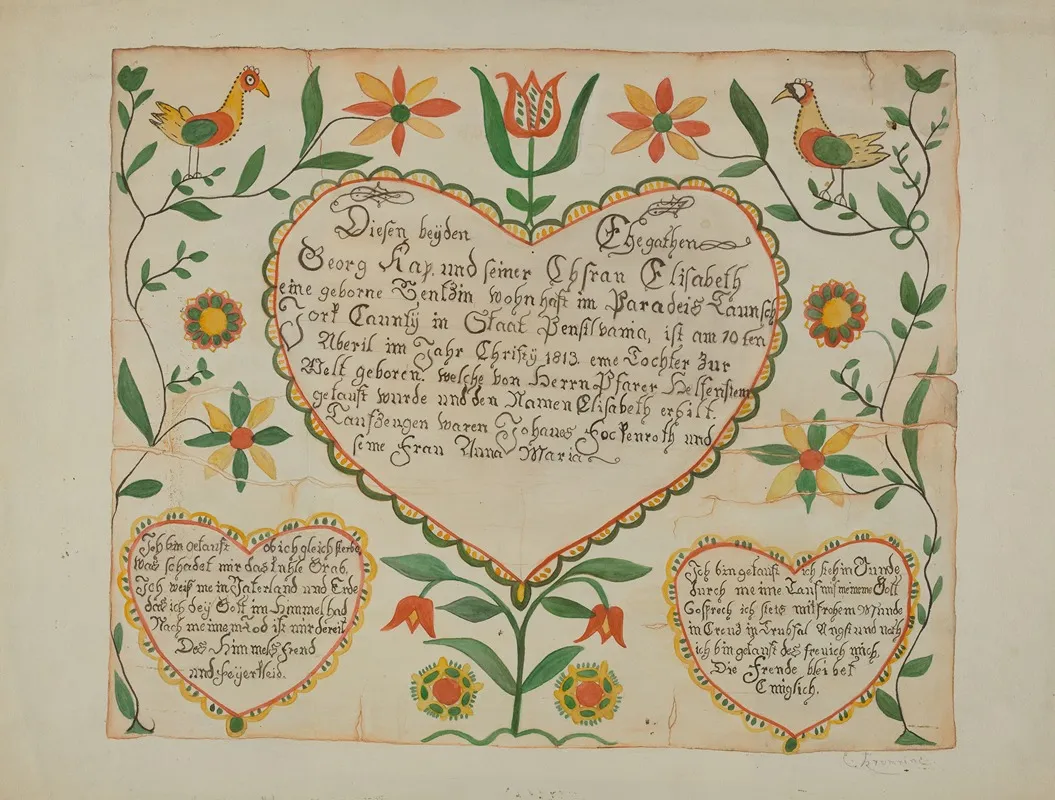 Diesen beÿden Ehegathen
Georg Kap. und seiner Ehsrau Elisabeth
eine geborne Gentzin wohnhaft im Paradeis Taunsch
York Cauntÿ in Staat Pensilvania, ist am 10 ten
Aberil im Jahr Christÿ 1813 eine Tochter zur
Welt geboren. welche von Herrn Pfarer Helfenstein
getauft wurde und den Namen Elisabeth erhilt.
Taufzeugen waren Johanes Fockenroth und
seine Frau Anna Maria
Ich bin getauft ob ich gleich sterbe
was schadet mir das kuhle Grab,
Ich weiß mein Vaterland und Erbe
das ich beÿ Gott im himmel hab
Nach meinem Tod ist mir bereit
Des Himmels freud
und feÿerkleid.
Ich bin getauft ich steh im Bunde
durch meine Tauf mit meinem Gott
So sprech ich stets mit frohem Munde
in Creuz in Trubsal Angst und noth
ich bin getauft des freu ich mich,
Die Freude bleibet
Ewiglich.